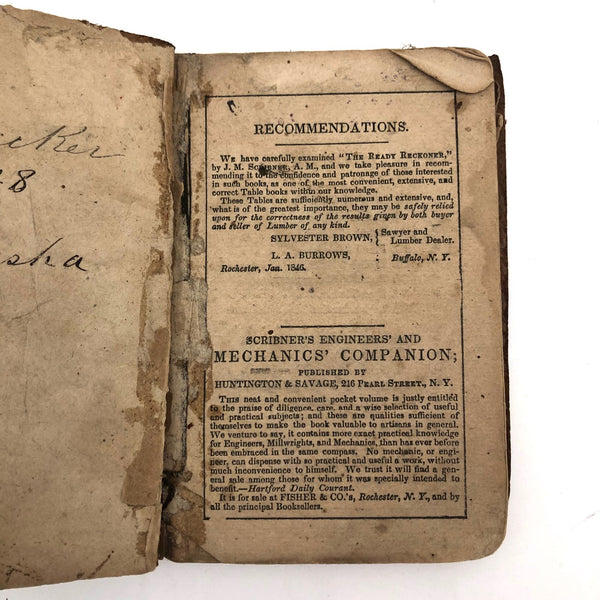 cker
48
sha
RECOMMENDATIONS.
WE have carefully examined "THE READY RECKONER,"
by J. M. SCRIBNER, A. M., and we take pleasure in recom-
mending it to the confidence and patronage of those interested
in such books, as one of the most convenient, extensive, and
correct Table books within our knowledge.
These Tables are sufficiently numerous and extensive, and,
what is of the greatest importance, they may be safely relied
upon for the correctness of the results given by both buyer
and seller of Lumber of any kind.
SYLVESTER BROWN, { Sawyer and
Lumber Dealer.
L. A. BURROWS, Buffalo, N. Y.
Rochester, Jan. 1846.
SCRIBNER'S ENGINEERS' AND
MECHANICS' COMPANION;
PUBLISHED BY
HUNTINGTON & SAVAGE, 216 PEARL STREET, N. Y.
THIS neat and convenient pocket volume is justly entitled
to the praise of diligence, care, and a wise selection of useful
and practical subjects; and these are qualities sufficient of
themselves to make the book valuable to artisans in general.
We venture to say, it contains more exact practical knowledge
for Engineers, Millwrights, and Mechanics, than has ever before
been embraced in the same compass. No mechanic, or engi-
neer, can dispense with so practical and useful a work, without
much inconvenience to himself. We trust it will find a gen-
eral sale among those for whom it was specially intended to
benefit.—Hartford Daily Courant.
It is for sale at FISHER & CO.'s, Rochester, N. Y., and by
all the principal Booksellers.